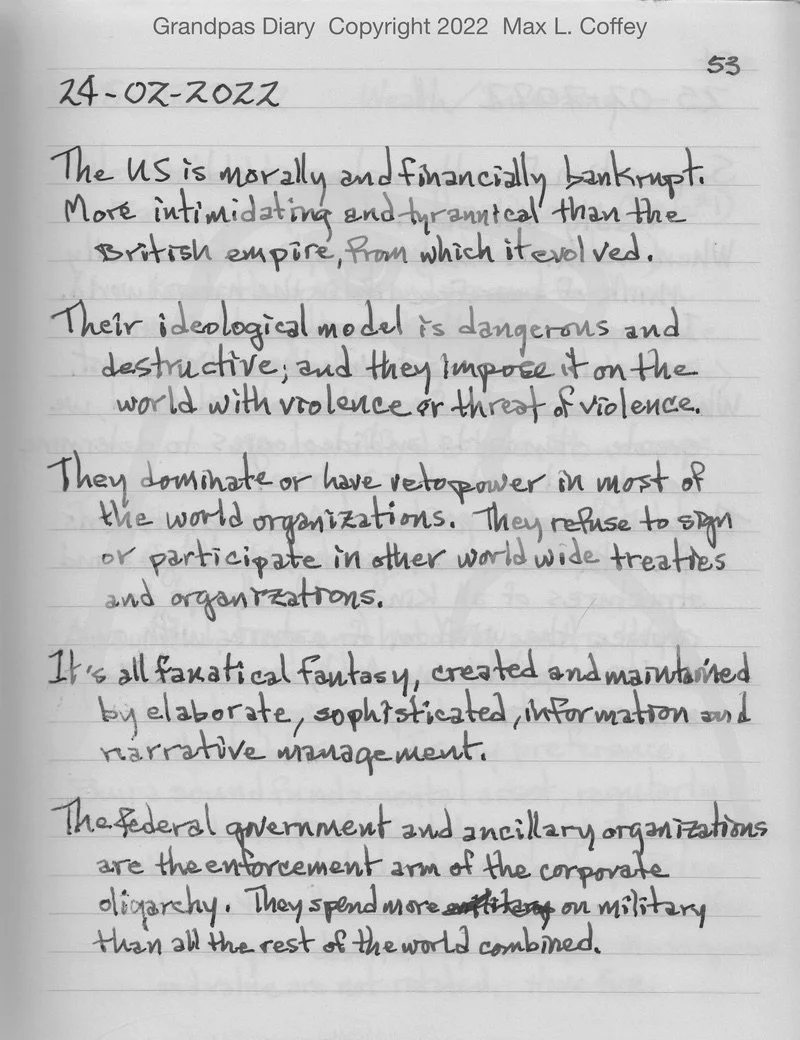 Grandpas Diary Copyright 2022 Max L. Coffey
53
24-02-2022
The US is morally and financially bankrupt.
More intimidating and tyrannical than the
British empire, from which it evolved.
Their ideological model is dangerous and
destructive; and they impose it on the
world with violence or threat of violence.
They dominate or have veto power in most of
the world organizations. They refuse to sign
or participate in other world wide treaties
and organizations.
It's all fanatical fantasy, created and maintained
by elaborate, sophisticated, information and
narrative management.
The federal government and ancillary organizations
are the enforcement arm of the corporate
oligarchy. They spend more on military
than all the rest of the world combined.